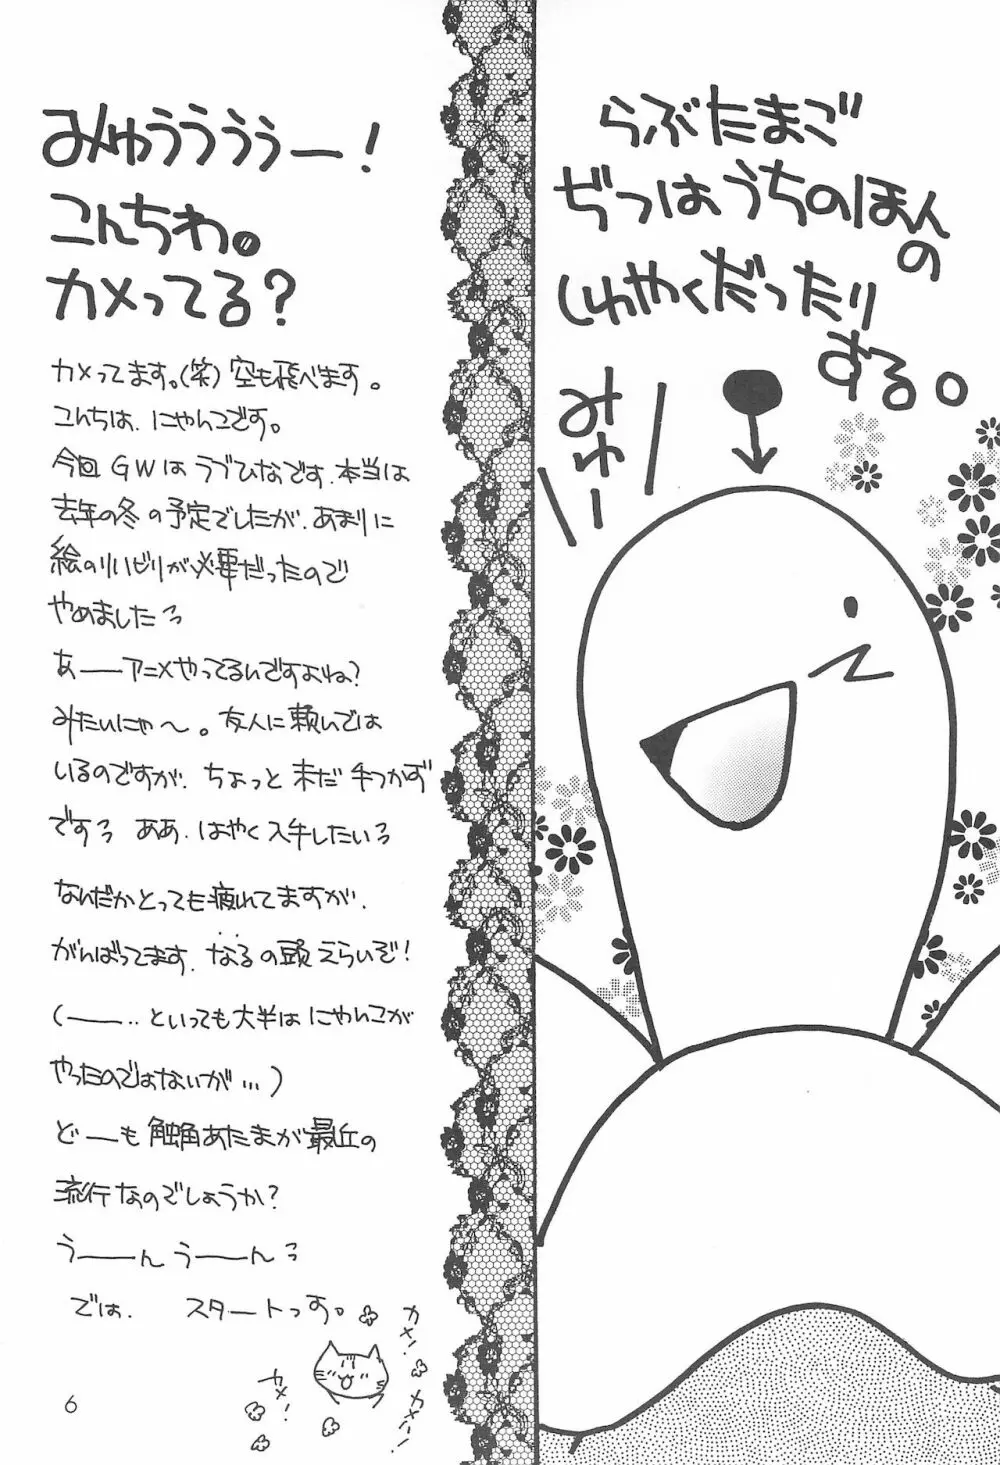 みゅうううぅー!
こんちわ。
カメってる?
カメってます。(笑)空も飛べます。
こんちは、にゃんこです。
今回GWはラブひなです。本当は
去年の冬の予定でしたが、あまりに
絵のリハビリが必要だったので
やめましたっ
あーーアニメやってるんですよね?
みたいにゃ〜。友人に頼んでは
いるのですが、ちょっと未だ手つかず
ですっ ああ、はやく入手したいっ
なんだかとっても疲れてますが、
がんばってます。なるの頭えらいぞ!
(ーー‥といっても大半はにゃんこが
やったのではないが…)
どーーも触角あたまが最近の
流行なのでしょうか?
うーーんうーーんっ
では、スタートっす。
カメ!
カメ!
カメー!
6
らぶたまご
ぢつはうちのほん
の
しゅやくだったり
する。
みゅー